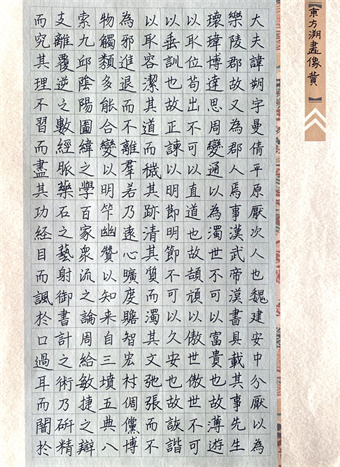 【東方朔畫像贊】
大夫諱朔字曼倩平原厭次人也魏建安中分厭以為
樂陵郡故又為郡人焉事漢武帝漢書具載其事先生
瓌瑋博達思周變通以為濁世不可以富貴也故薄遊
以取位苟出不可以直道也故頡頏以傲世傲世不可
以垂訓也故正諫以明節明節不可以久安也故詼諧
以取容潔其道而穢其跡清其質而濁其文弛張而不
為邪進退而不離羣若乃遠心曠度贍智宏材倜儻博
物觸類多能合變以明筭幽贊以知來自三墳五典八
索九邱陰陽圖緯之學百家衆流之論周給敏捷之辯
支離覆逆之數經脈藥石之藝射御書計之術乃研精
而究其理不習而盡其功經目而諷於口過耳而闇於